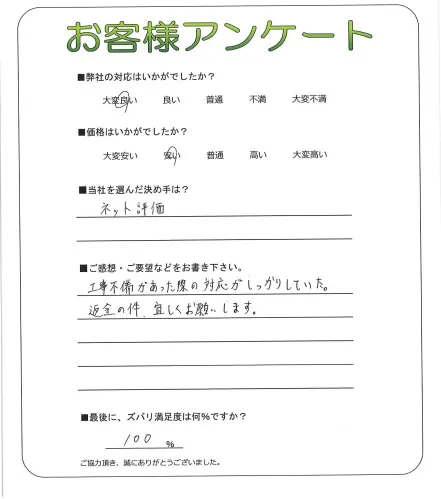 お客様アンケート
■弊社の対応はいかがでしたか？
大変良い 良い 普通 不満 大変不満
■価格はいかがでしたか？
大変安い 安い 普通 高い 大変高い
■当社を選んだ決め手は？
ネット評価
■ご感想・ご要望などをお書き下さい。
工事不備があった際の対応がしっかりしていた。
返金の件、宜しくお願いします。
■最後に、ズバリ満足度は何％ですか？
100 %
ご協力頂き、誠にありがとうございました。